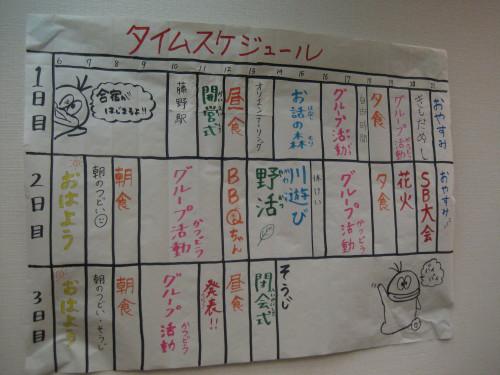 タイムスケジュール
6 7 8 9 10 11 12 13 14 15 16 17 18 19 20 21
1日目
合宿が
はじまるよ!!
藤野駅
開営式
昼食
オリエンテーリング
お話の森
グループ活動
自由時間
夕食
グループ活動
きもだめし
おやすみ
2日目
おはよう
朝のつどい
朝食
グループ活動
かつどう
BB
ちゃん
野活
川遊び
休けい
グループ活動
かつどう
夕食
花火
SB大会
おやすみ
3日目
おはよう
朝のつどい・そうじ
朝食
グループ活動
かつどう
発表!!
昼食
閉会式
そうじ
バイ
バイ